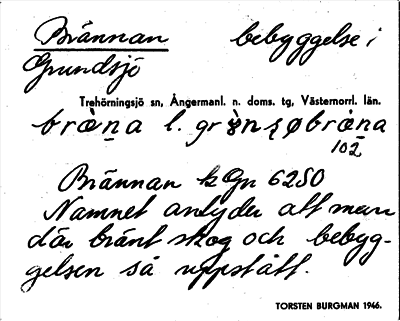 Brännan bebyggelse i
Grundsjö
Trehörningsjö sn, Ångermanl. n. doms. tg, Västernorrl. län.
bràn̲a l. gr
102
Brännan k Gr 6250
Namnet antyder att man
där bränt skog och bebyg-
gelsen så uppstått.
TORSTEN BURGMAN 1946.